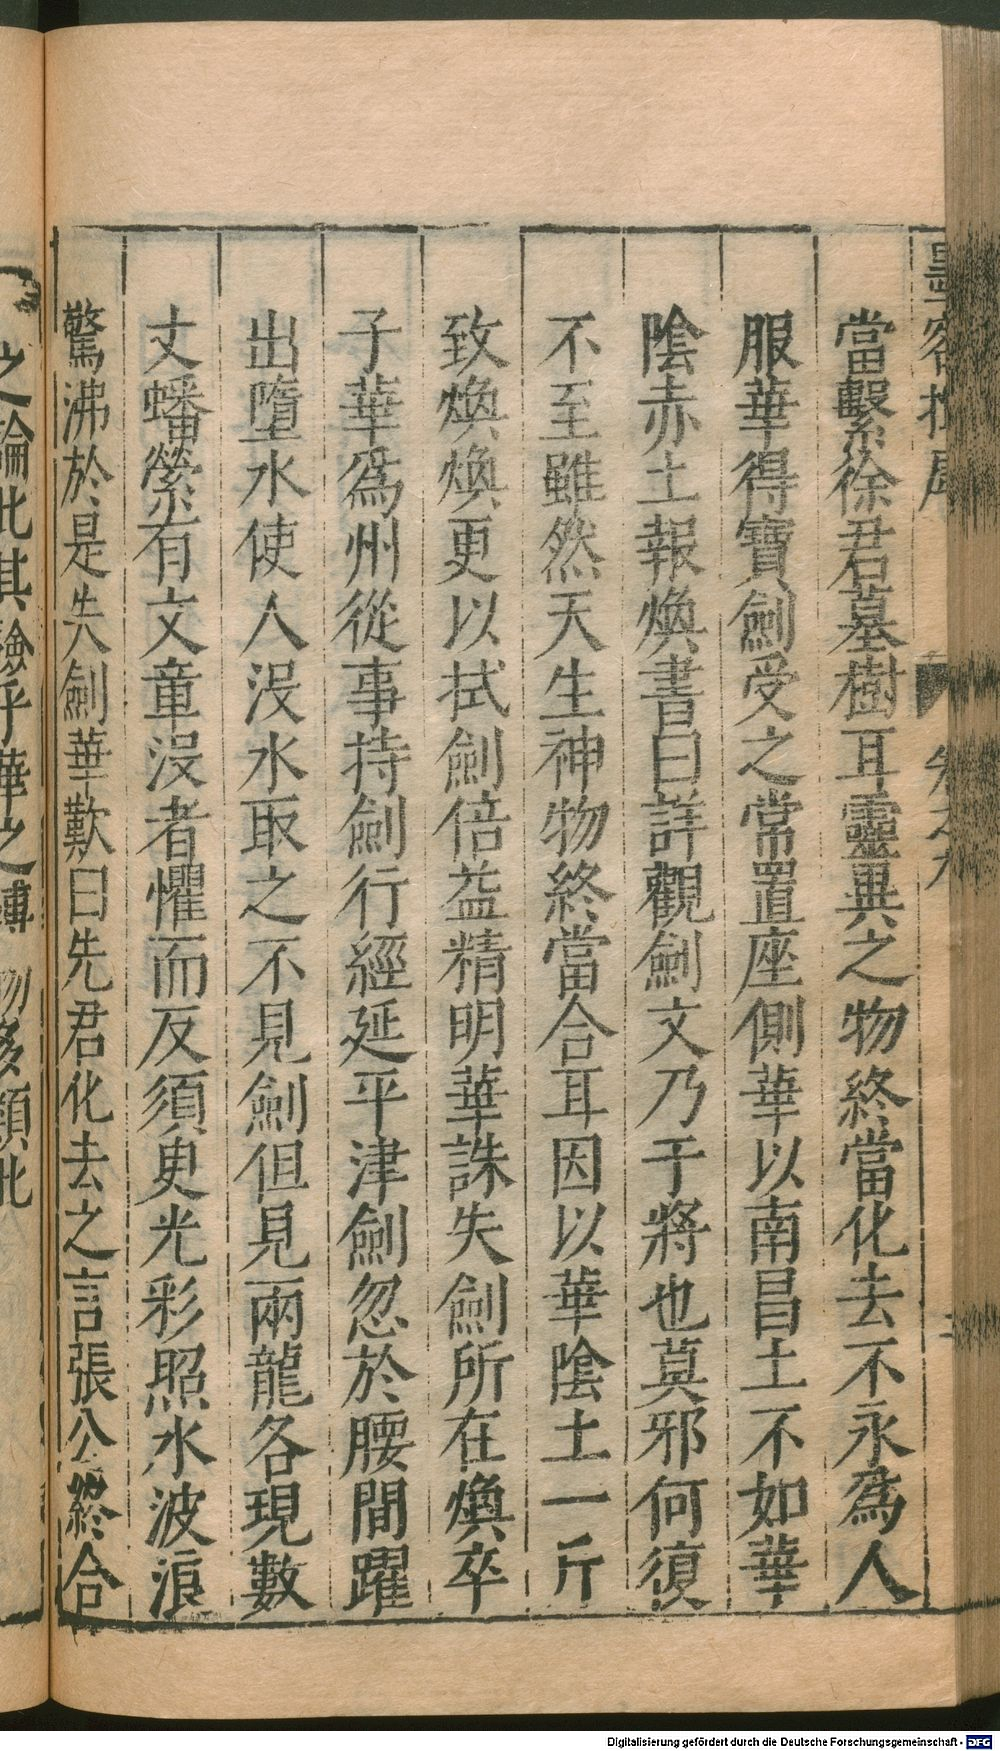 當繫徐君墓樹耳靈異之物終當化去不永爲人
服華得寶劍受之常置座側華以南昌土不如華
陰赤土報煥書曰詳觀劍文乃干將也莫邪何復
不至雖然天生神物終當合耳因以華陰土一斤
致煥煥更以拭劍倍益精明華誅失劍所在煥卒
子華爲州從事持劍行經延平津劍忽於腰間躍
出墮水使人沒水取之不見劍但見兩龍各現數
丈蟠縈有文章沒者懼而反須臾光彩照水波浪
驚沸於是失劍華歎曰先君化去之言張公終合
之論此其驗乎華之博物多類此
Digitalisierung gefördert durch die Deutsche Forschungsgemeinschaft - DFG